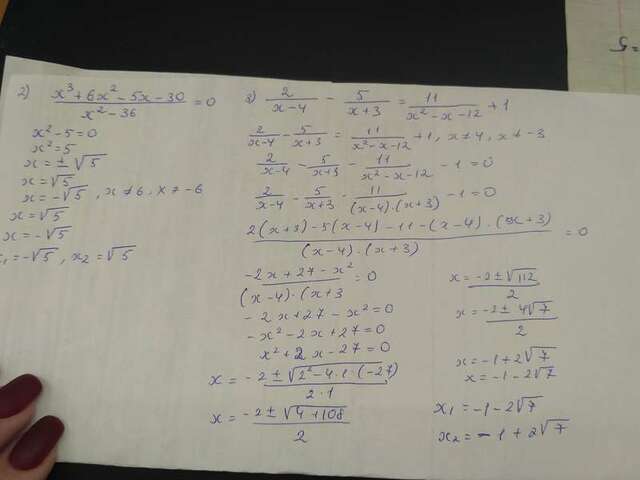 2) (x³+6x²-5x-30)/(x²-36) = 0
x²-5=0
x²=5
x=±√5
x=√5
x=-√5, x≠6, x≠-6
x=√5
x=-√5
x₁=-√5, x₂=√5
3) 2/(x-4) - 5/(x+3) = 11/(x²-x-12) + 1
2/(x-4) - 5/(x+3) = 11/(x²-x-12) + 1, x≠4, x≠-3
2/(x-4) - 5/(x+3) - 11/(x²-x-12) - 1=0
2/(x-4) - 5/(x+3) - 11/((x-4)·(x+3)) - 1=0
(2(x+3)-5(x-4)-11-(x-4)·(x+3))/((x-4)·(x+3)) = 0
(-2x+27-x²)/((x-4)·(x+3) = 0
-2x+27-x²=0
-x²-2x+27=0
x²+2x-27=0
x = (-2±√(2²-4·1·(-27)))/(2·1)
x = (-2±√(4+108))/2
x = (-2±√112)/2
x = (-2±4√7)/2
x=-1+2√7
x=-1-2√7
x₁=-1-2√7
x₂=-1+2√7
=5